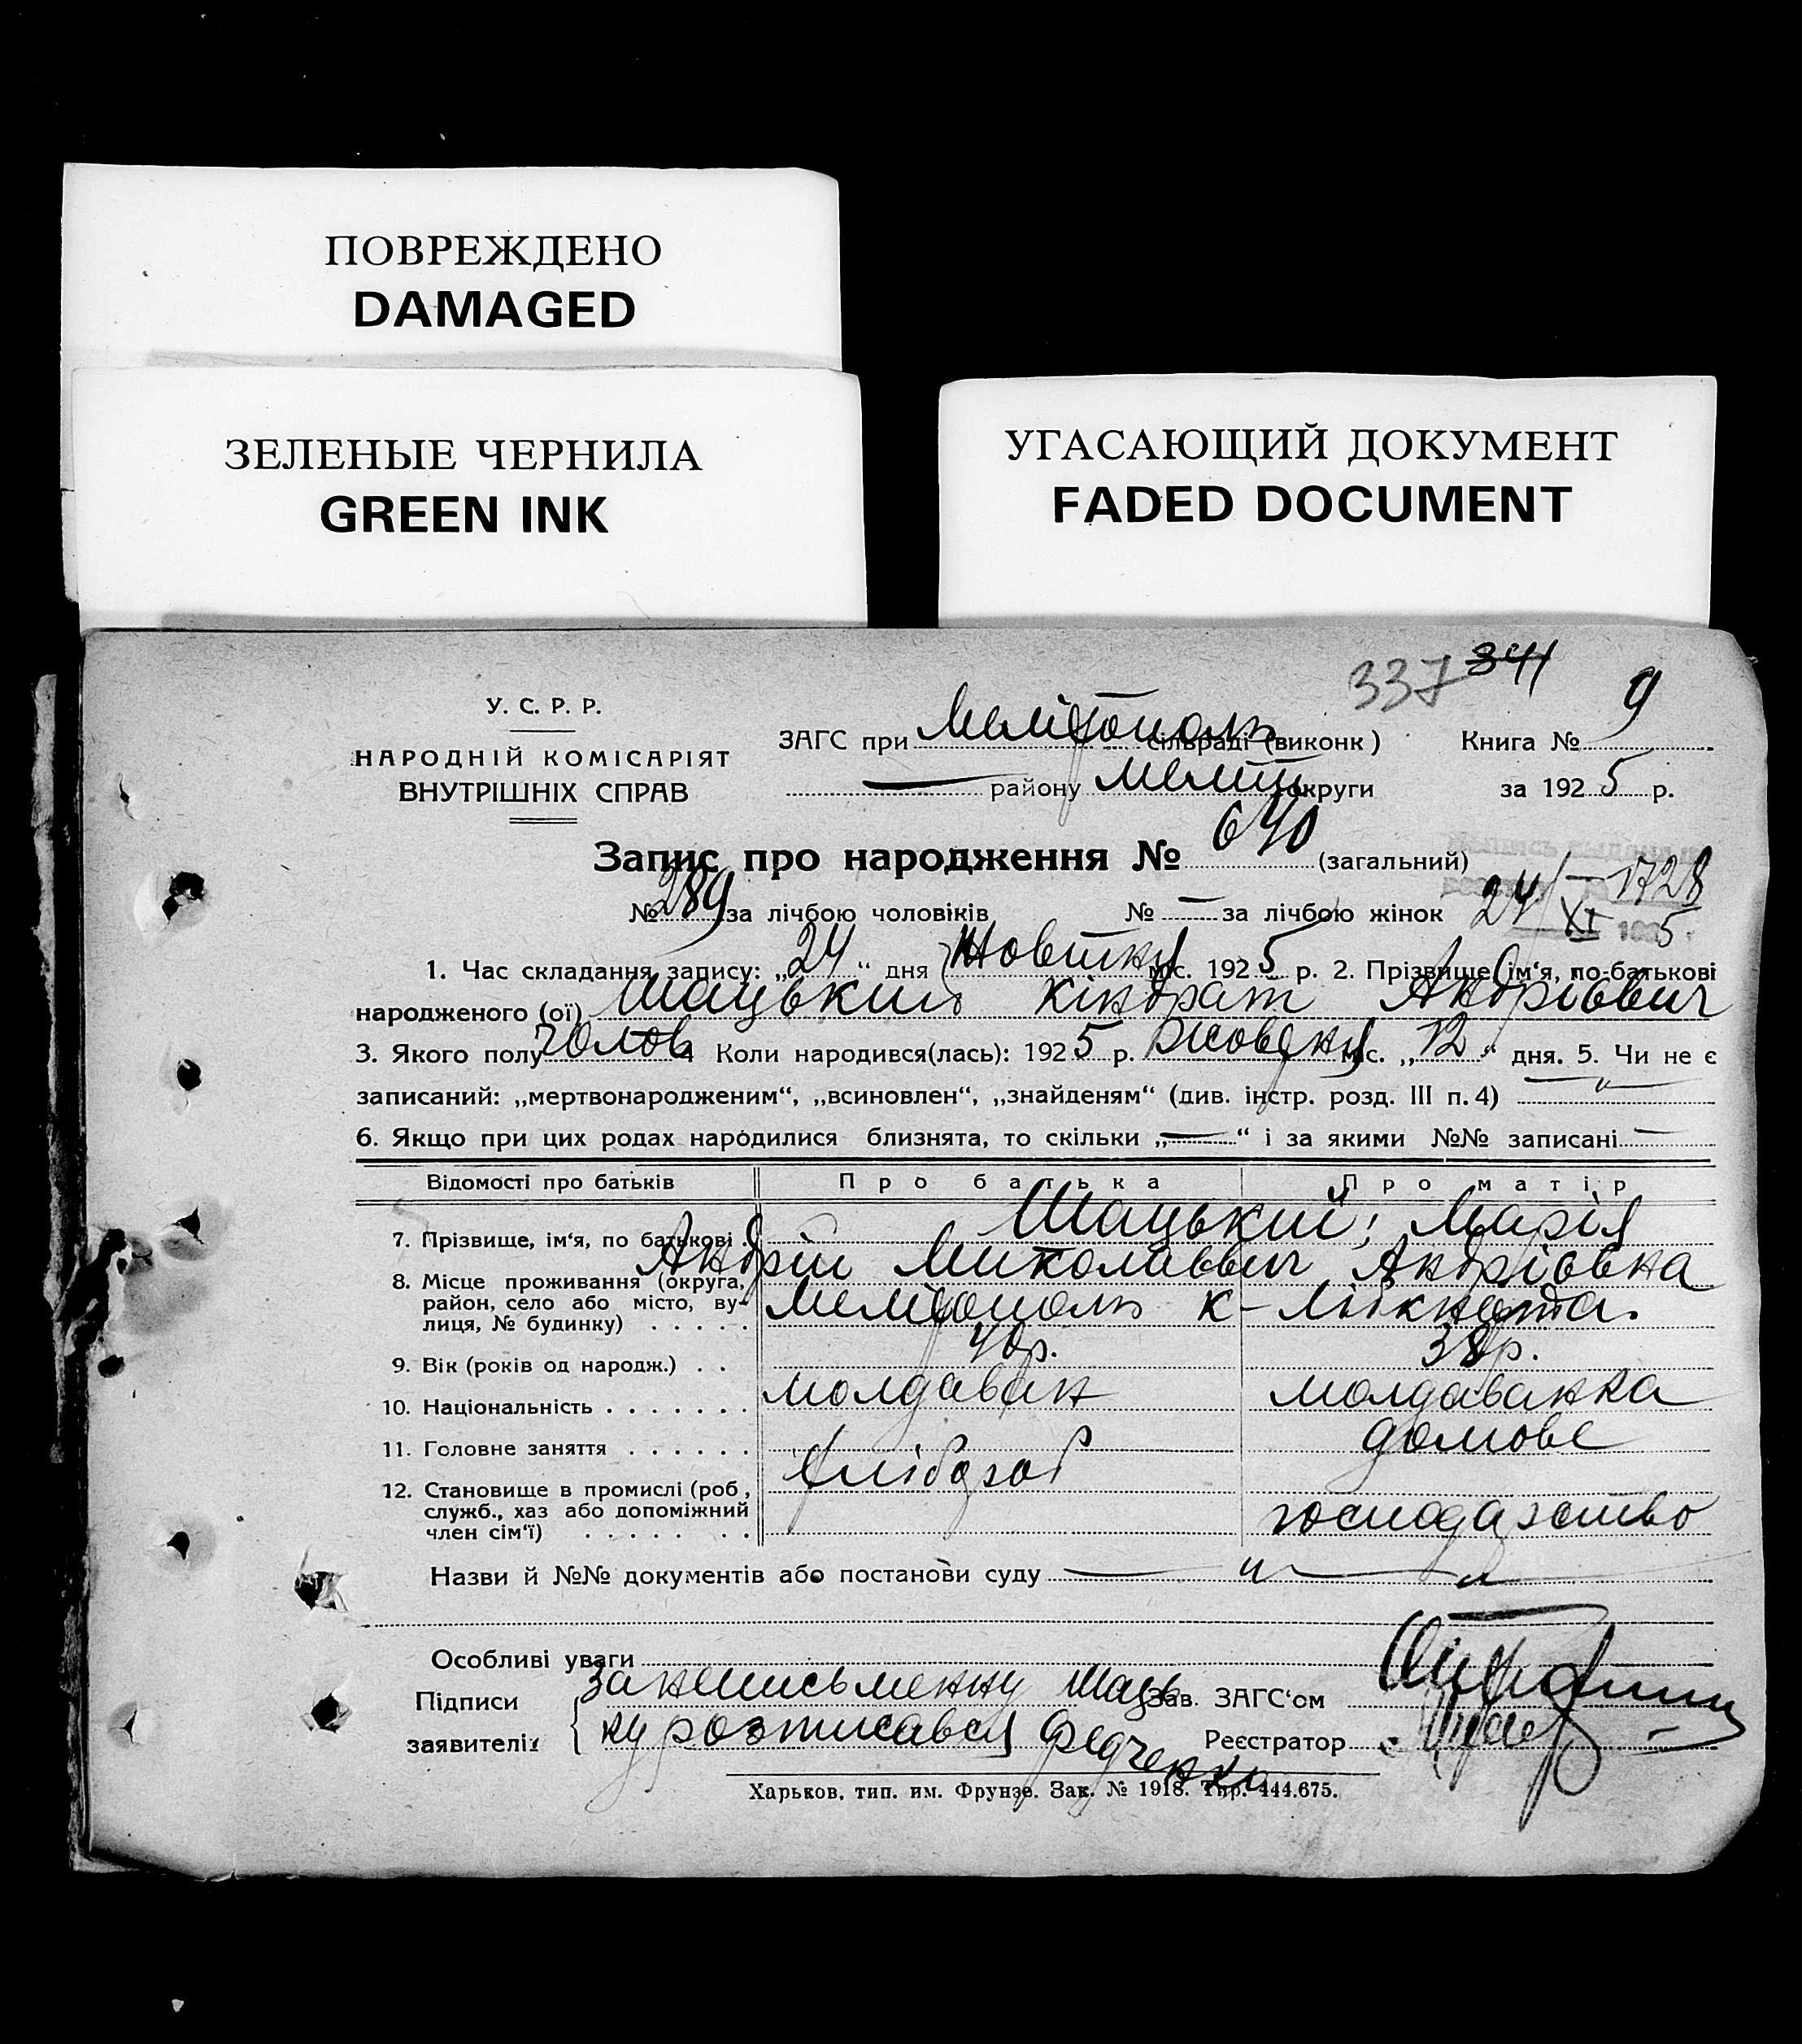 ПОВРЕЖДЕНО
DAMAGED
ЗЕЛЕНЫЕ ЧЕРНИЛА
GREEN INK
УГАСАЮЩИЙ ДОКУМЕНТ
FADED DOCUMENT
337 341
У. С. Р. Р.
НАРОДНІЙ КОМІСАРІЯТ
ВНУТРІШНІХ СПРАВ
ЗАГС при Мелітополь сільраді (виконк) Книга № 9
— району Меліт округи за 1925 р.
Запис про народження № 640 (загальний)
№ 289 за лічбою чоловіків № — за лічбою жінок 24/XI 1728 5
1. Час складання запису: „24“ дня Жовтня міс. 1925 р. 2. Прізвище, ім‘я, по-батькові
народженого (ої) Шацький Кіндрат Андрієвич
3. Якого полу чолов 4 Коли народився(лась): 1925 р. жовтня міс. „12“ дня. 5. Чи не є
записаний: „мертвонародженим“, „всиновлен“, „знайденям“ (див. інстр. розд. III п. 4) — „ —
6. Якщо при цих родах народилися близнята, то скільки „—“ і за якими №№ записані —
Відомості про батьків Про батька Про матір
7. Прізвище, ім‘я, по батькові . Шацький; Марія
Андрій Миколаєвич Андрієвна
8. Місце проживання (округа, район, село або місто, вулиця, № будинку) . . . . . Мелітополь К-Лібкнехта.
9. Вік (років од народж.) . . 40р. 38р.
10. Національність . . . . . . . молдаван молдаванка
11. Головне заняття . . . . . . хлібороб домове
12. Становище в промислі (роб., служб., хаз або допоміжний член сім‘ї) . . . . . . . господарство
Назви й №№ документів або постанови суду — „ — „ —
Особливі уваги
Підписи За неписьменну Шаць Зав. ЗАГС‘ом
заявителів ку розписався Федченко Реєстратор
Харьков, тип. им. Фрунзе. Зак. № 1918. Тир. 444.675.